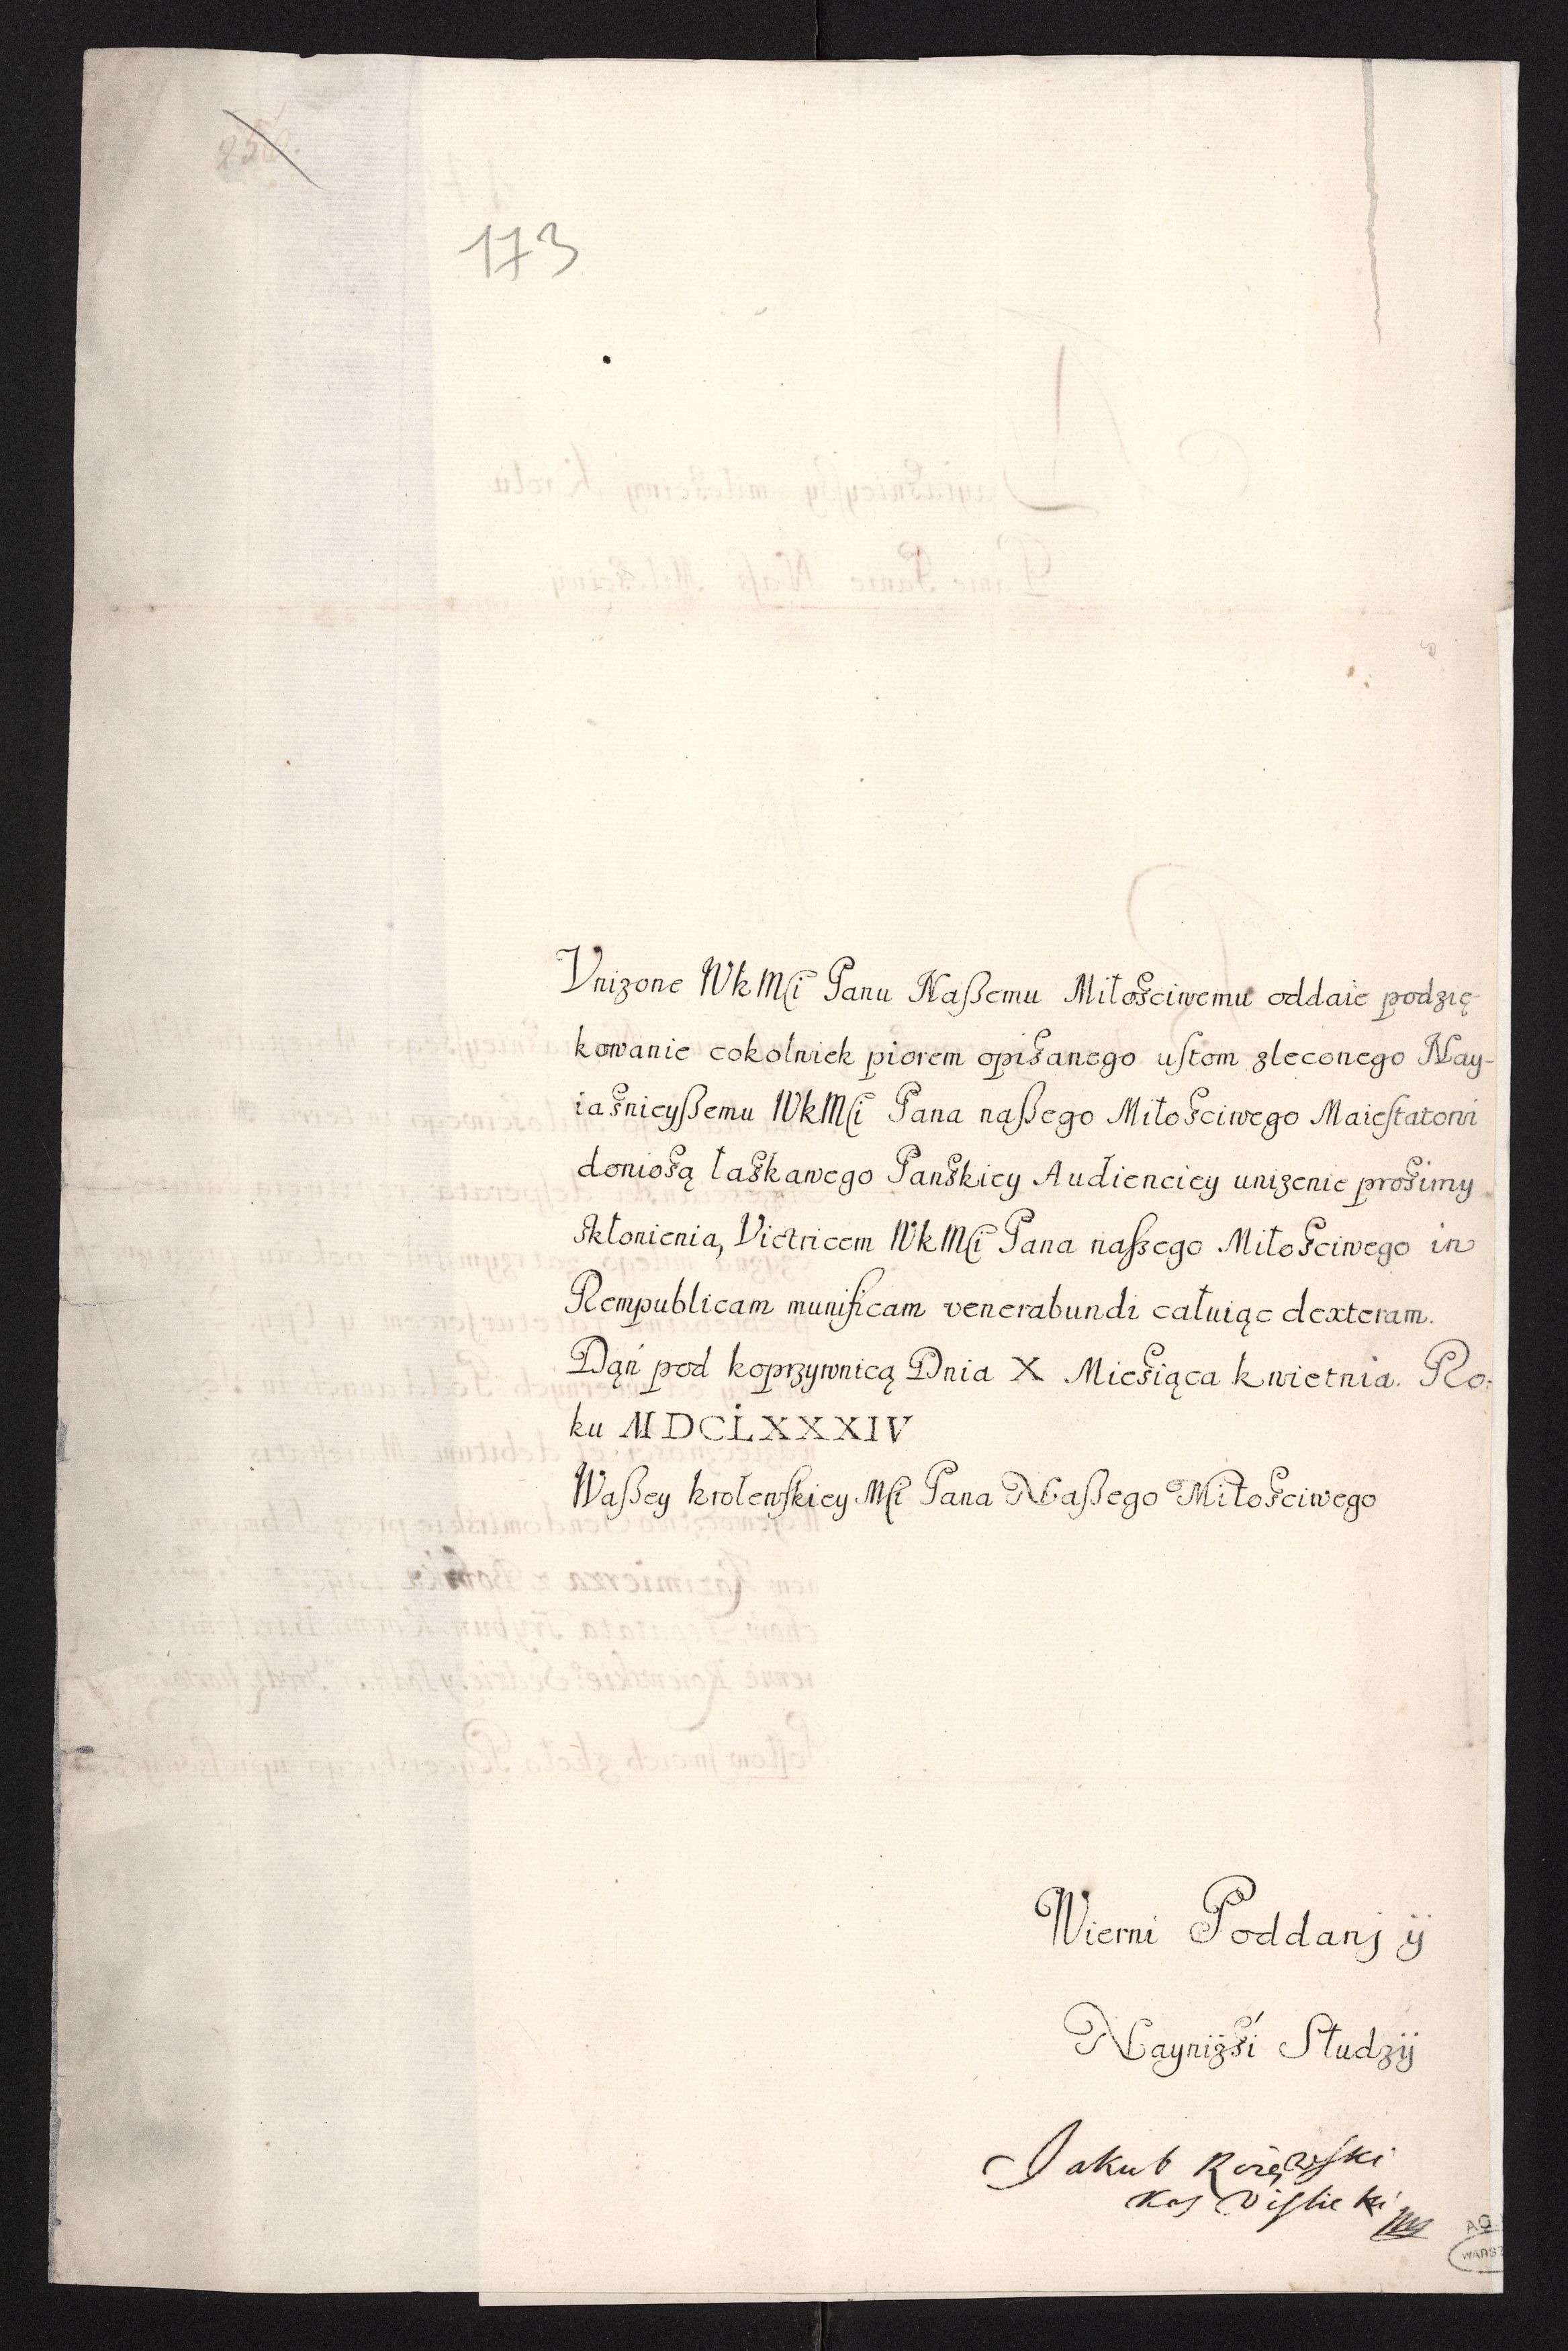 173
Vnizone WkMſci Panu Naßemu Miłosciwemu oddaie podzię-
kowanie cokolwiek piorem opisanego uſtom zleconego Nay-
iasnieyßemu WkMſci Pana naßego Miłosciwego Maieſtatowi
doniosą łaskawego Panskiey Audienciey unizenie prosimy
skłonienia, Victricem WkMſci Pana naßego Miłosciwego in
Rempublicam munificam venerabundi całuiąc dexteram.
Dąń pod koprzywnicą Dnia X Miesiąca kwietnia. Ro-
ku MDCLXXXIV
Waßey krolewſkiey Mſci Pana Naßego Miłosciwego
Wierni Poddanj ÿ
Nayniżśi Słudzÿ
Jakub
AG
WARSZ